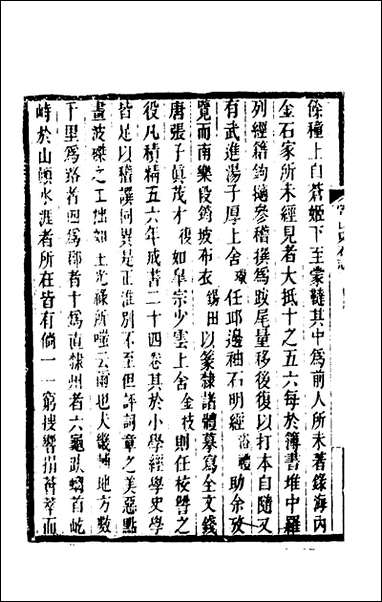 餘種上自蒼姬下至蒙韃其中爲前人所未著錄海內
金石家所未經見者大抵十之五六每於簿書堆中羅
列經籍鉤擿參稽撰爲跋尾量移後復以打本自隨又
有武進湯子厚上舍任邱邊袖石明經浴禮助余攷
覽而南樂段坡布衣錫田以篆隸諸體摹寫全文錢
唐張子眞茂才俊如皋宗少雲上舍金枝則任校讐之
役凡積精五六年成書二十四卷其於小學經學史學
皆足以稽譔同異是正淮別不至但評詞章之美惡點
畫波磔之工拙如王光祿所嗤云爾也大畿輔地方數
千里爲路者四爲郡者十爲直隸州者六龜趺螭首屹
峙於山顚水涯者所在皆有倘一一窮搜響捐薈萃而